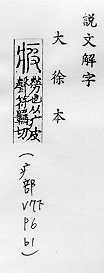 說文解字
大徐本
疲
勞也从疒皮
聲符羈切
(疒部 V7下 P6 b1)